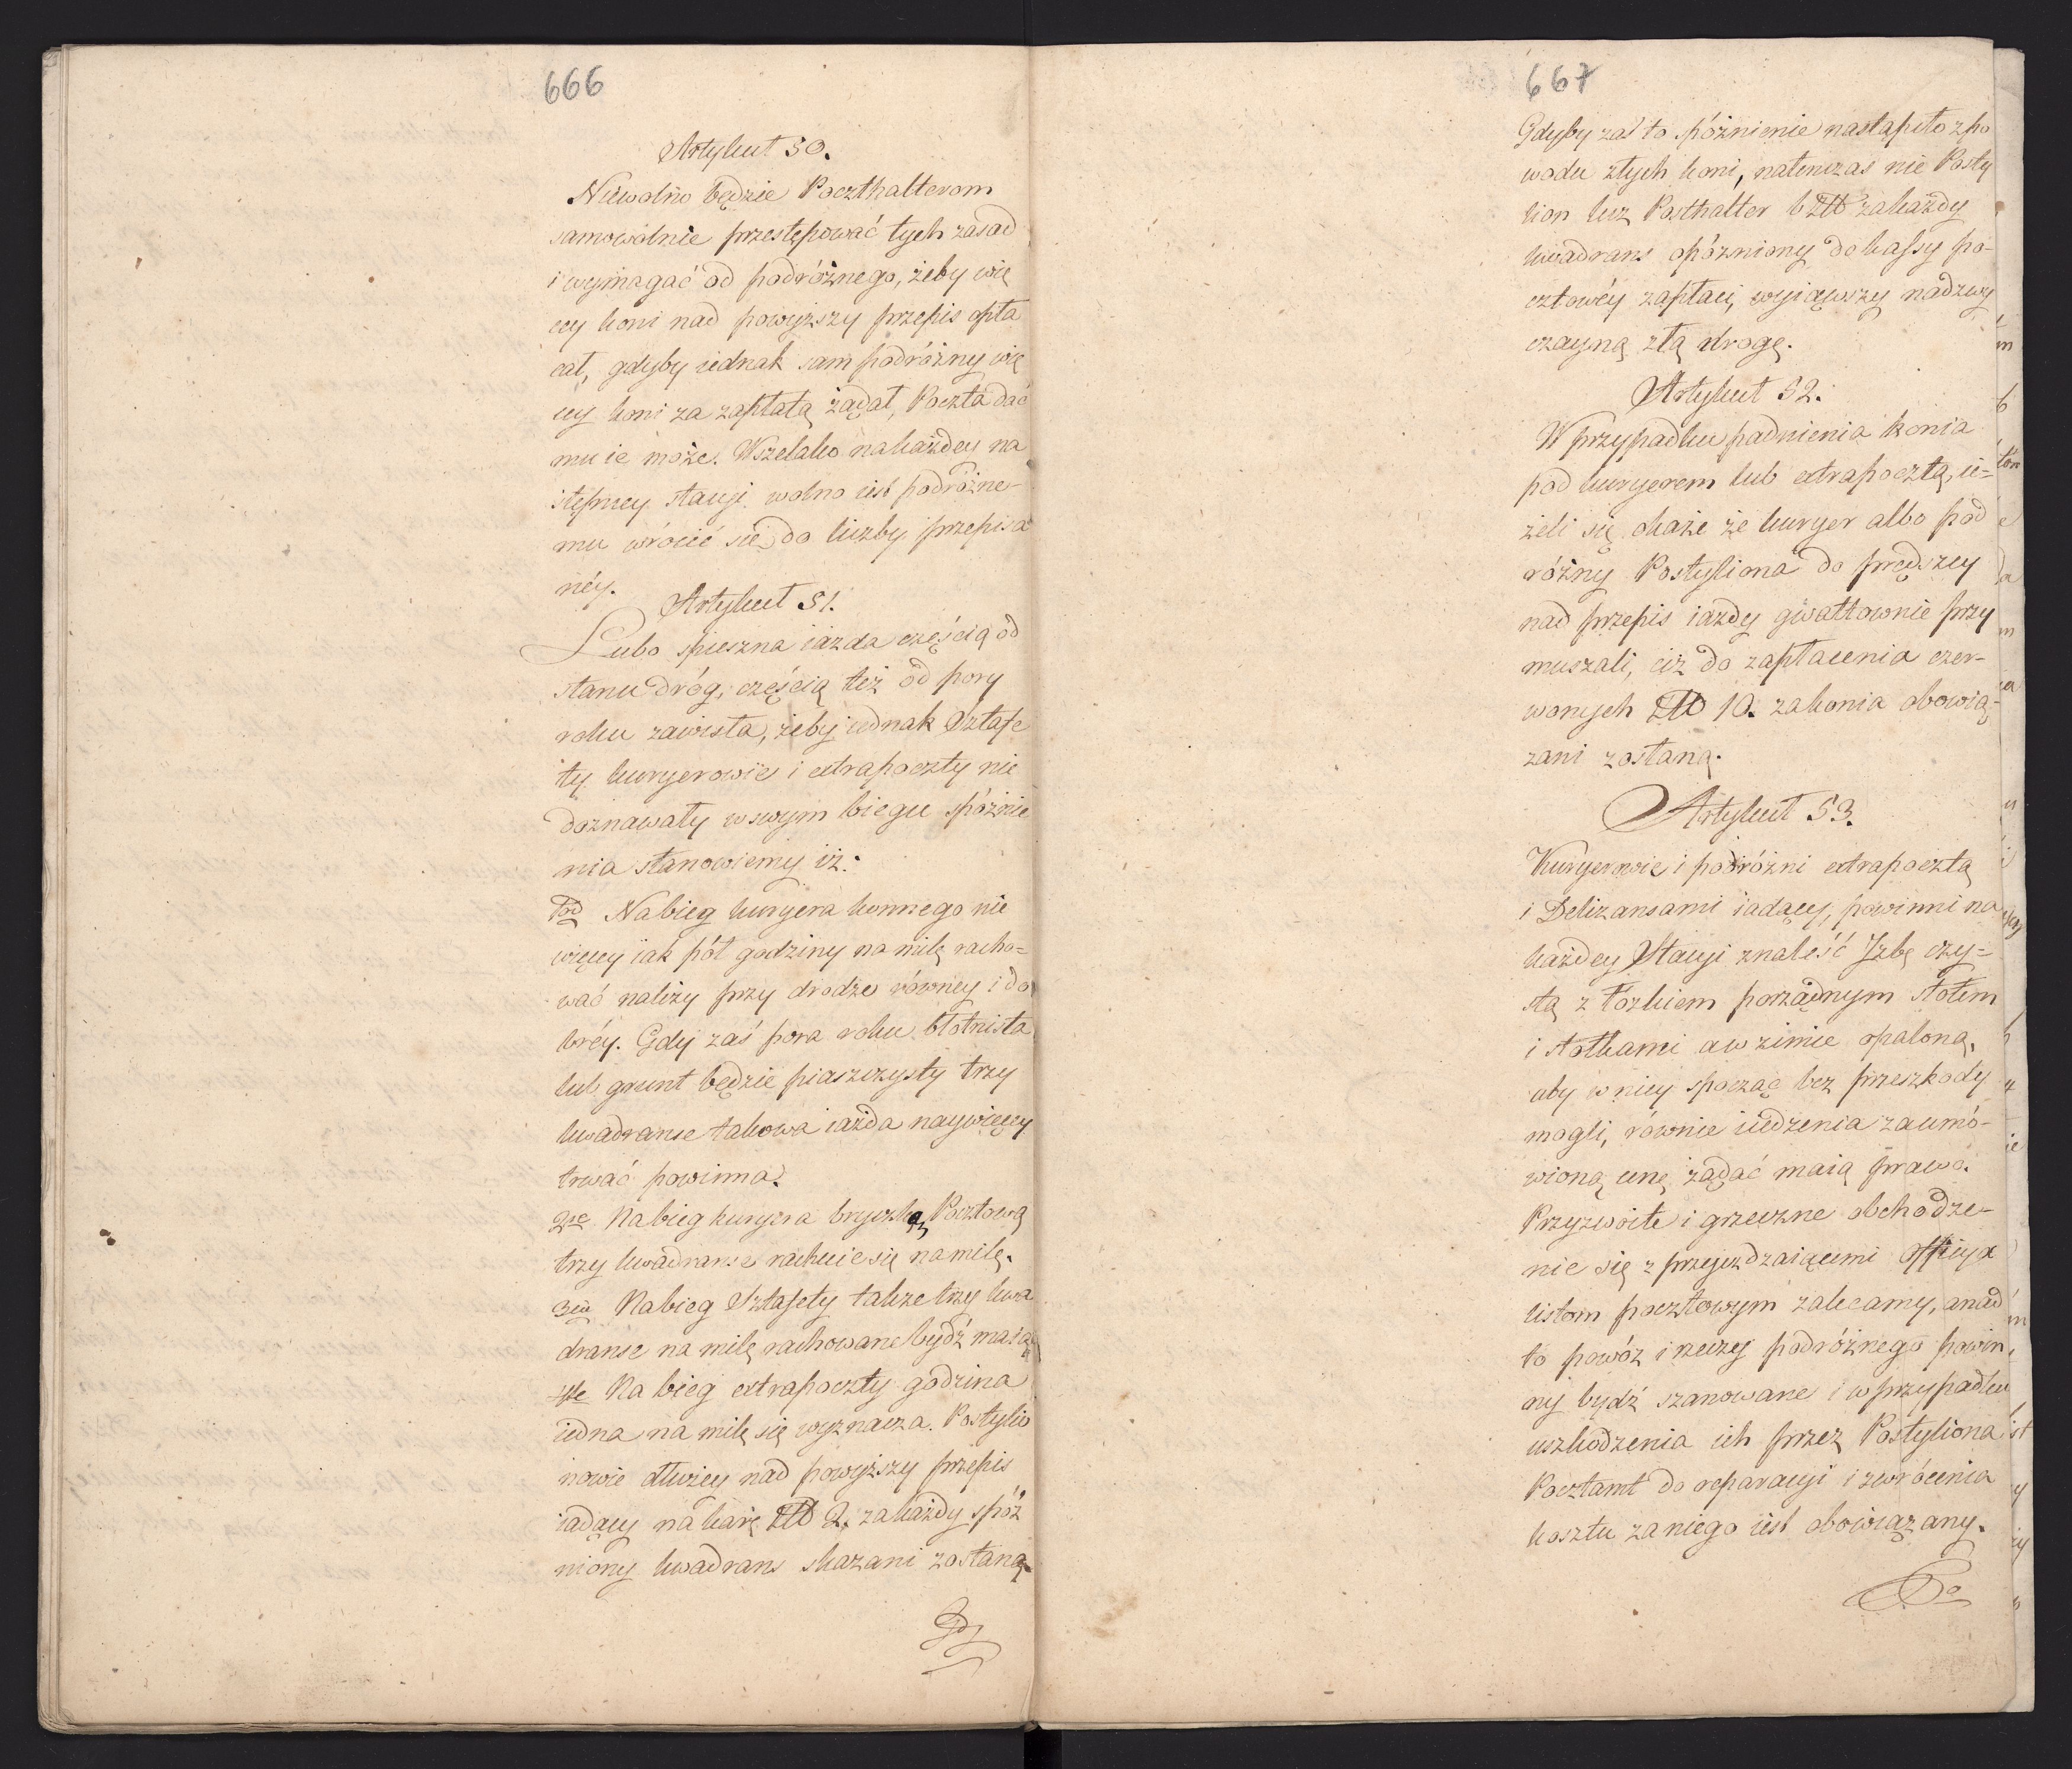 666
Artykuł 50.
Niewolno będzie Poczthalterom
samowolnie przestępować tych zasad
i wymagać od podróżnego, żeby wię
cey koni nad powyższy przepis opła
cał, gdyby iednak sam podróżny wię
cey koni za zapłatą żądał, Poczta dać
mu ie może. Wszelako na każdey na
stępney stacyi wolno iest podróżne-
mu wrócić się do liczby przepisa
néy.
Artykuł 51.
Lubo spieszna iazda częścią od
stanu dróg, częścią też od pory
roku zawisła, żeby iednak Sztafe
ty kuryerowie i extrapoczty nie
doznawały w swym biegu spóźnie
nia stanowiemy iż:
1od Na bieg kuryera konnego nie
więcey iak pół godziny na milę racho=
wać należy przy drodze równey i do
bréy. Gdy zaś pora roku błotnista
lub grunt będzie piaszczysty trzy
kwadranse takowa iazda naywięcey
trwać powinna.
2re Na bieg kuryera bryczką Pocztową
trzy kwadranse rachuie się na milę.
3cie Na bieg Sztafety także trzy kwa
dranse na milę rachowane bydź maią
4te Na bieg extrapoczty godzina
iedna na milę się wyznacza. Postylio
nowie dłużey nad powyższy przepis
iadący na karę Złł 2. za każdy spóź
niony kwadrans skazani zostaną.
Gdy
667
Gdyby zaś to spóźnienie nastąpiło z po
wodu złych koni, natenczas nie Posty
lion lecz Posthalter 6 Złł za każdy
kwadrans opóźniony do kassy po-
cztowéy zapłaci, wyiąwszy nadzwy
czayną złą drogę.
Artykuł 52.
W przypadku padnienia konia
pod kuryerem lub extrapocztą, ie=
żeli się okaże że kuryer albo pod
różny Postyliona do prędszey
nad przepis iazdy gwałtownie przy
muszali, ciż do zapłacenia czer-
wonych Złł 10. za konia obowią-
zani zostaną.
Artykuł 53.
Kuryerowie i podróżni extrapocztą
i Deliżansami iadący, powinni na
każdey Stacyi znaleść Izbę czy=
stą z łóżkiem porządnym stołem
i stołkami a w zimie opaloną,
aby w niey spocząć bez przeszkody
mogli, równie iedzenia za umó-
wioną cenę żądać maią prawo.
Przyzwoite i grzeczne obchodze-
nie się z przejezdzaiącemi officya
listom pocztowym zalecamy, a nad
to powóz i rzeczy podróżnego powin
ny bydź szanowane i w przypadku
uszkodzenia ich przez Postyliona
Pocztamt do reparacyi i zwrócenia
kosztu za niego iest obowiązany.